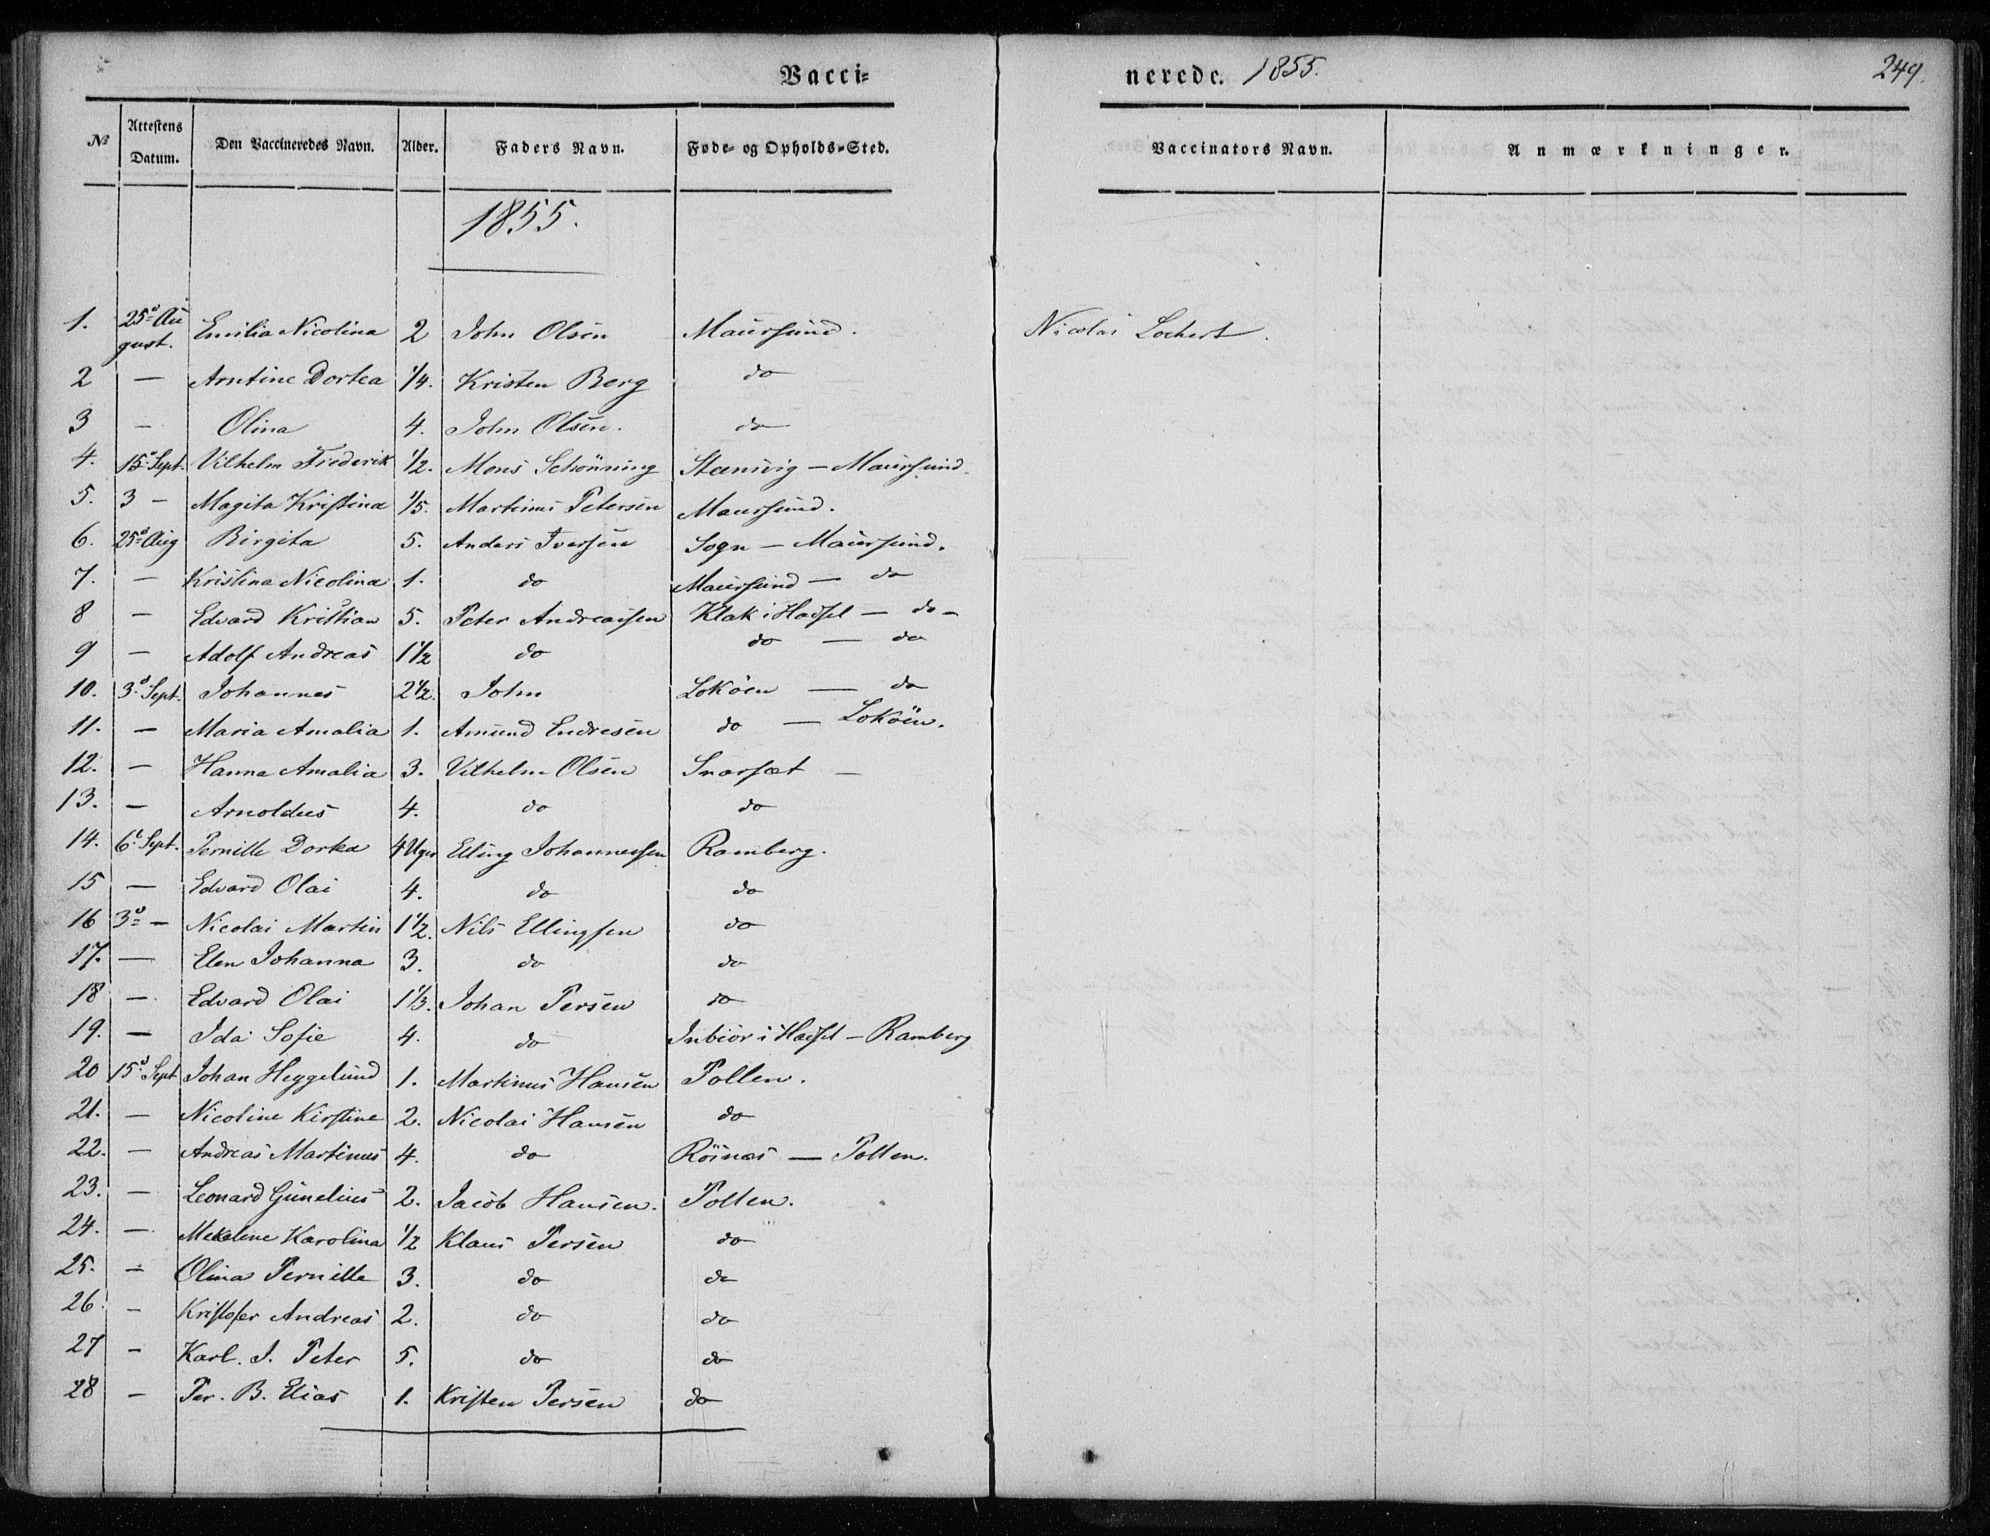 Vacci= nerede. 1855. 249.
№ Attestens Datum. Den Vaccineredes Navn. Alder. Faders Navn. Føde- og Opholds-Sted. Vaccinators Navn. Anmærkninger.
1855.
1. 25de August. Emilia Nicolina 2 John Olsen Maursund. Nicolai Lochert.
2 — Arntine Dortea 1/4. Kristen Berg do
3 — Olina 4. John Olsen. do
4. 15de Sept. Vilhelm Frederik 1/2. Mons Schönning Steenvig — Maursund.
5. 3 — Magita Kristina 1/5. Martinus Petersen Maursund.
6. 25de Aug Birgita 5. Anders Iversen Sogn — Maursund.
7. — Kristina Nicolina 1. do Maursund — do
8 — Edvard Kristian 5. Peter Andreassen Klak i Hadsel — do —
9 — Adolf Andreas 1 1/2 do do — do
10. 3de Sept. Johannes 2 1/2. John Loköen — do
11. — Maria Amalia 1. Amund Endresen do — Loköen.
12. — Hanna Amalia 3. Vilhelm Olsen Snarsæt —
13. — Arnoldus 4. do do
14. 6te Sept. Pernille Dortea 4 Uger Elling Johannessen Ramberg.
15 — Edvard Olai 4. do do
16 3de — Nicolai Martin 1 1/2. Nils Ellingsen do
17. — Elen Johanna 3. do do
18 — Edvard Olai 1 1/3. Johan Persen do
19. — Ida Sofie 4. do i Hadsel — Ramberg
20 15de Sept Johan Heggelund 1. Martinus Hansen Pollen.
21. — Nicoline Kirstine 2. Nicolai Hansen do
22. — Andreas Martinus 4. do Röinæs — Pollen.
23. — Leonard Gunelius 2. Jacob Hansen. Pollen.
24. — Mekeline Karolina 1/2 Klaus Persen do
25. — Olina Pernille 3. do do
26. — Kristofer Andreas 2. do do
27 — Karl. J. Peter 5. do do
28 — Per. B. Elias 1. Kristen Persen do